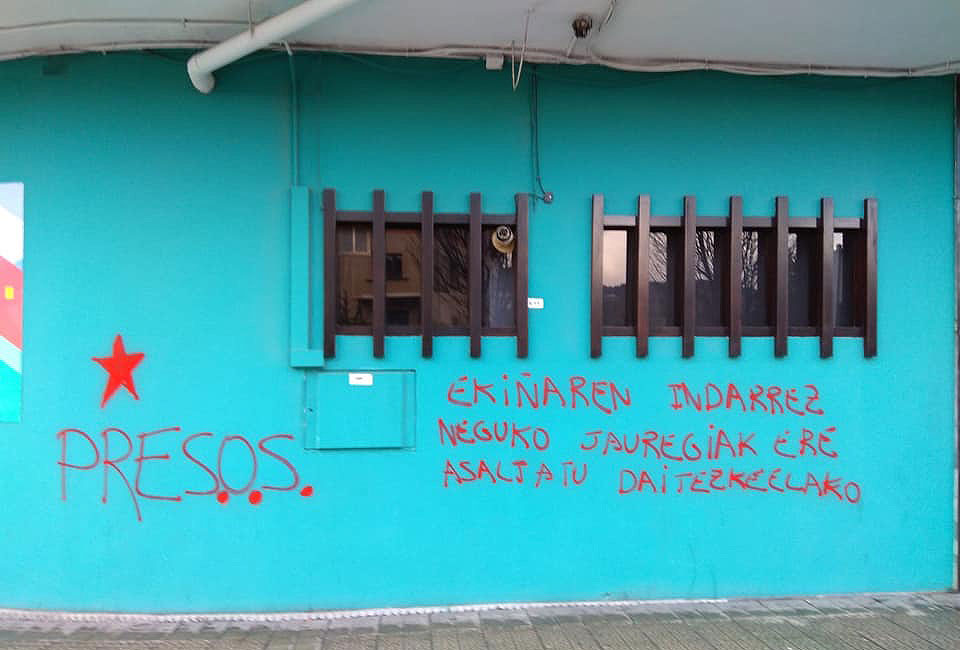 PRES.O.S.
EKIÑAREN INDARREZ
NEGUKO JAUREGIAK ERE
ASALTATU DAITEZKEELAKO